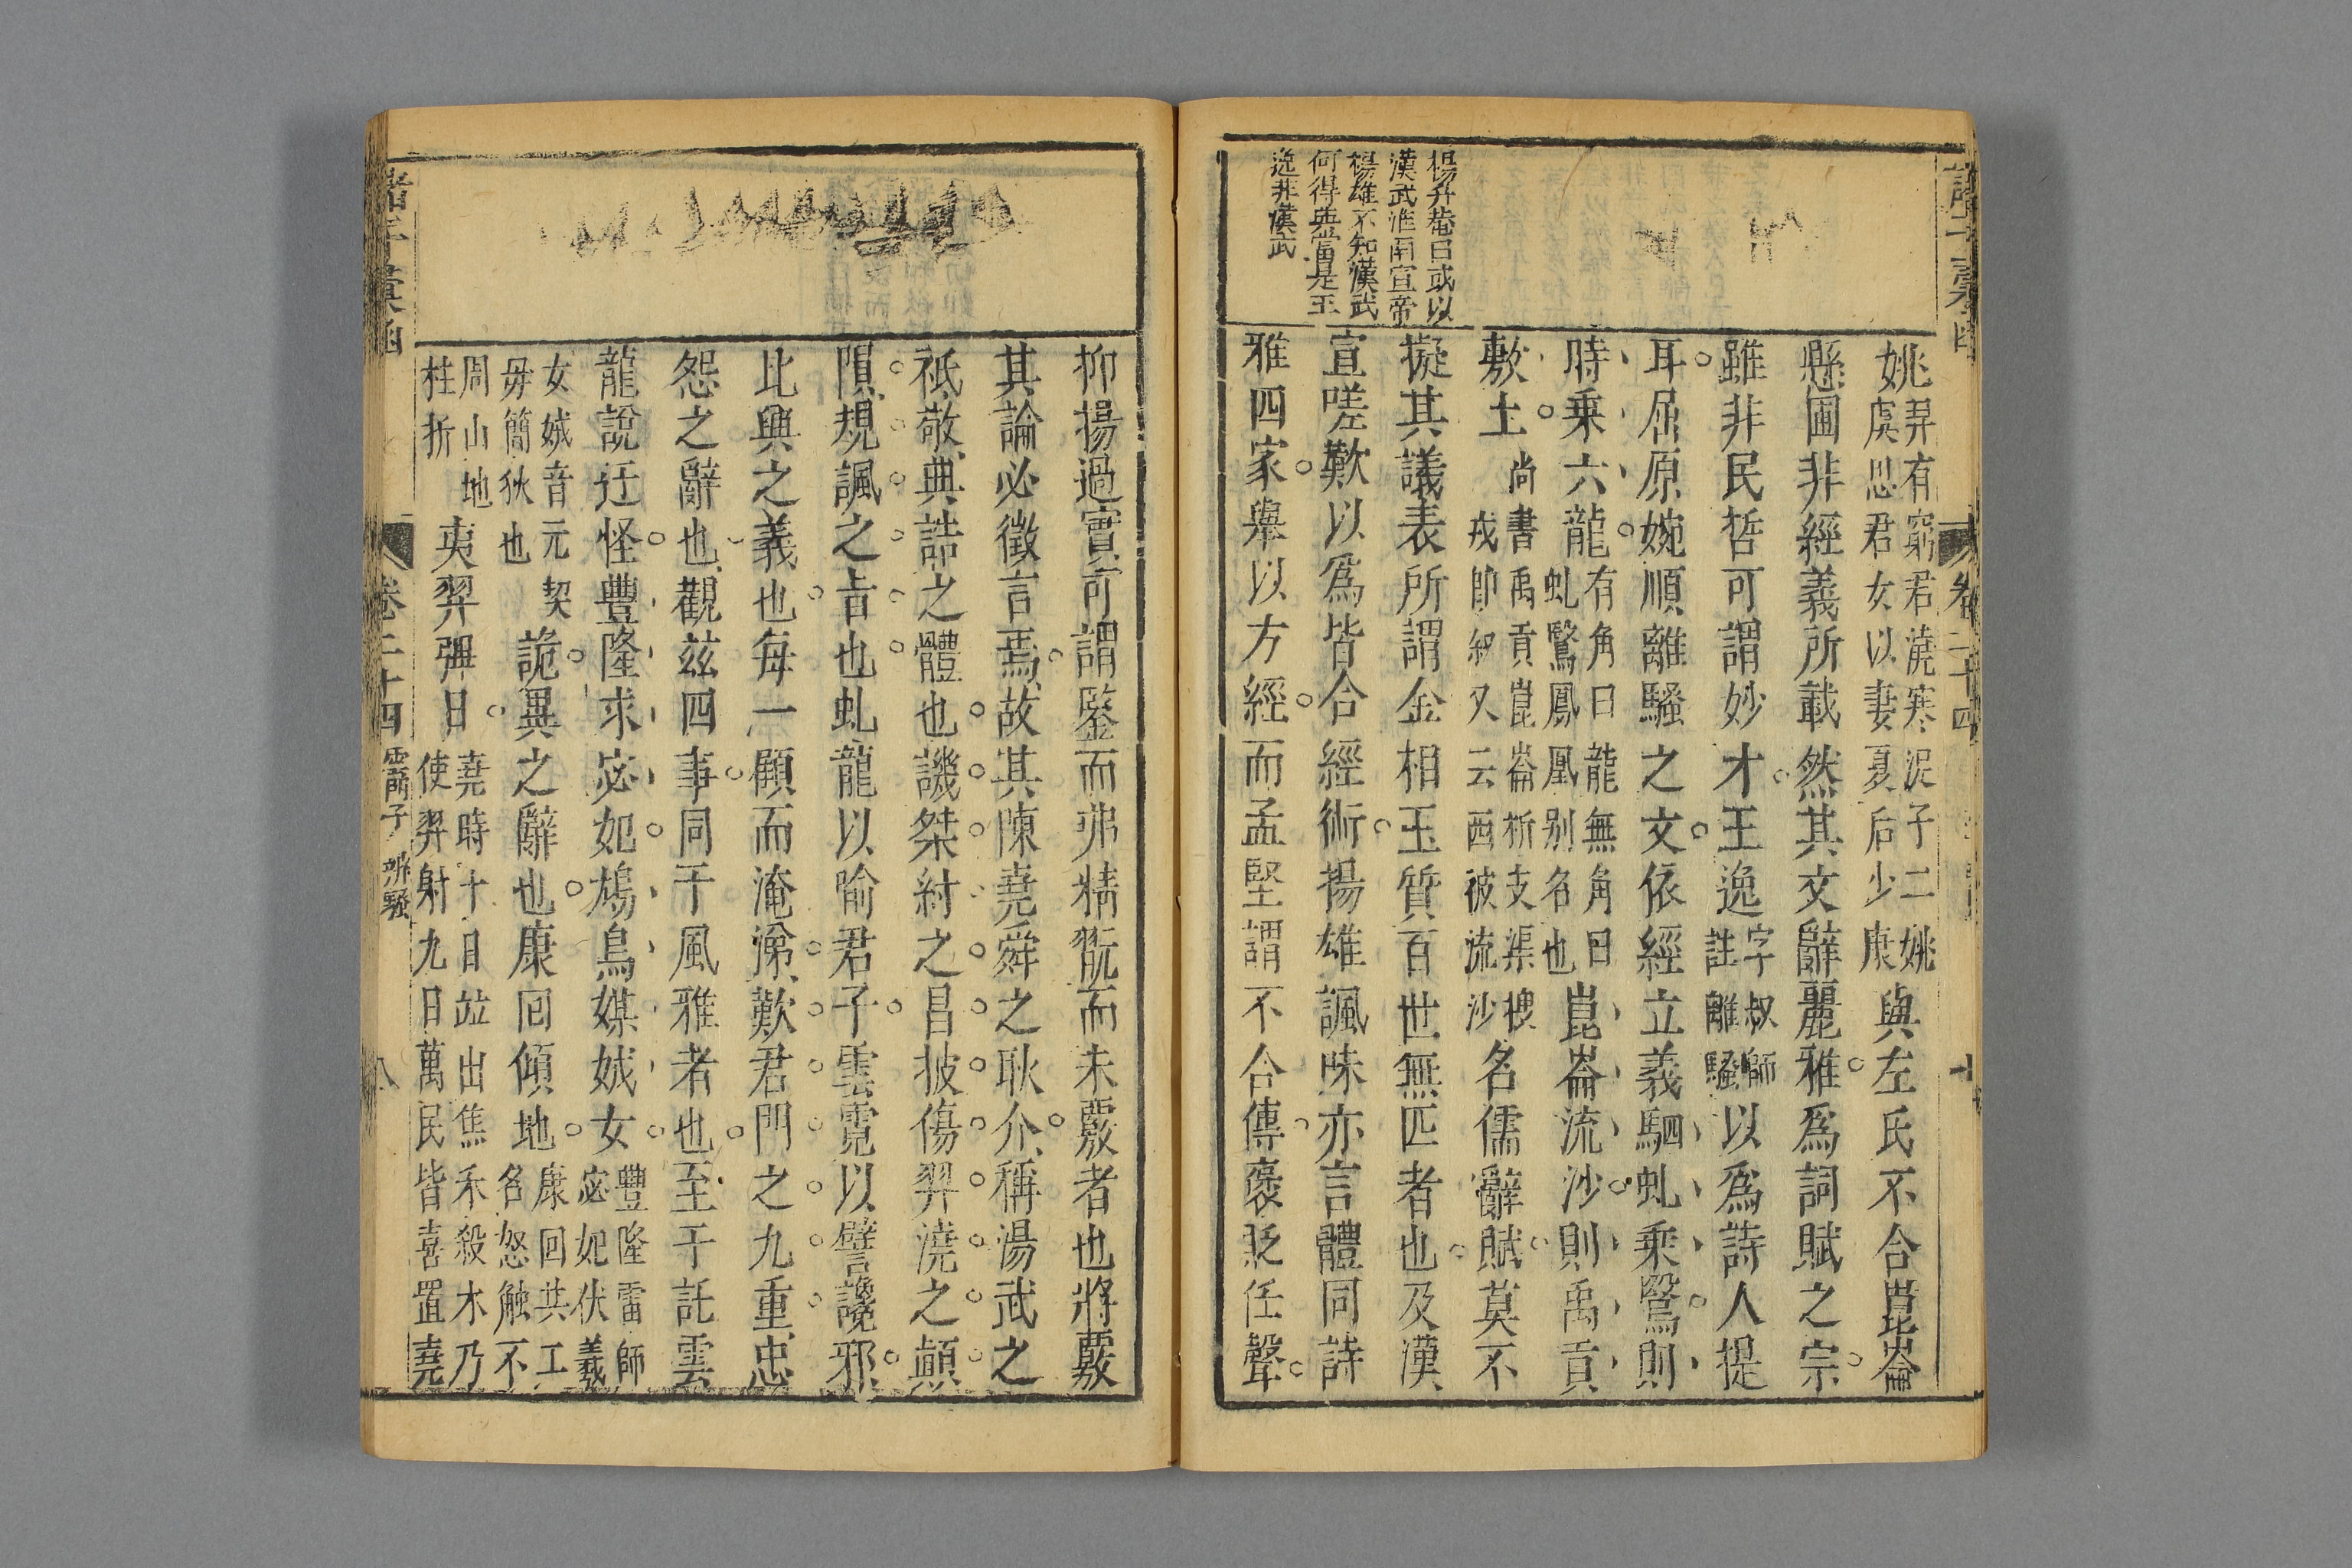 楊升菴曰或以
漢武淮南宣帝
楊雄不知漢武
何得與當是王
逸非漢武
姚羿有窮君澆寒浞子二姚
虞思君女以妻夏后少康與左氏不合崑崙
懸圃非經義所載然其文辭麗雅爲詞賦之宗
雖非民哲可謂妙才王逸字叔師
註離騷以爲詩人提
耳屈原婉順離騷之文依經立義駟虬乘鷖則
時乗六龍有角曰龍無角曰
虬鷖鳳凰别名也崑崙流沙則禹貢
敷土尚書禹貢崑崙析支渠搜
戎即叙又云西被流沙名儒辭賦莫不
擬其議表所謂金相玉質百世無匹者也及漢
宣嗟歎以爲皆合經術揚雄諷味亦言體同詩
雅四家舉以方經而孟堅謂不合傳褒貶任聲
抑揚過實可謂鑒而弗精翫而未覈者也將覈
其論必徵言焉故其陳堯舜之耿介稱湯武之
祗敬典誥之體也譏桀紂之昌披傷羿澆之顛
隕規諷之旨也虬龍以喻君子雲霓以譬讒邪
比興之義也每一顧而淹涕歎君門之九重忠
怨之辭也觀茲四事同于風雅者也至于託雲
龍說迂怪豐隆求宓妃鴆鳥媒娀女豐隆雷師
宓妃伏羲
女娀音元契
毋簡狄也詭異之辭也康回傾地康回共工
名怒触不
周山地
柱折夷羿彃日堯時十日並出焦禾殺木乃
使羿射九日萬民皆喜置堯
卷二十四
雲門子 辨騷
八